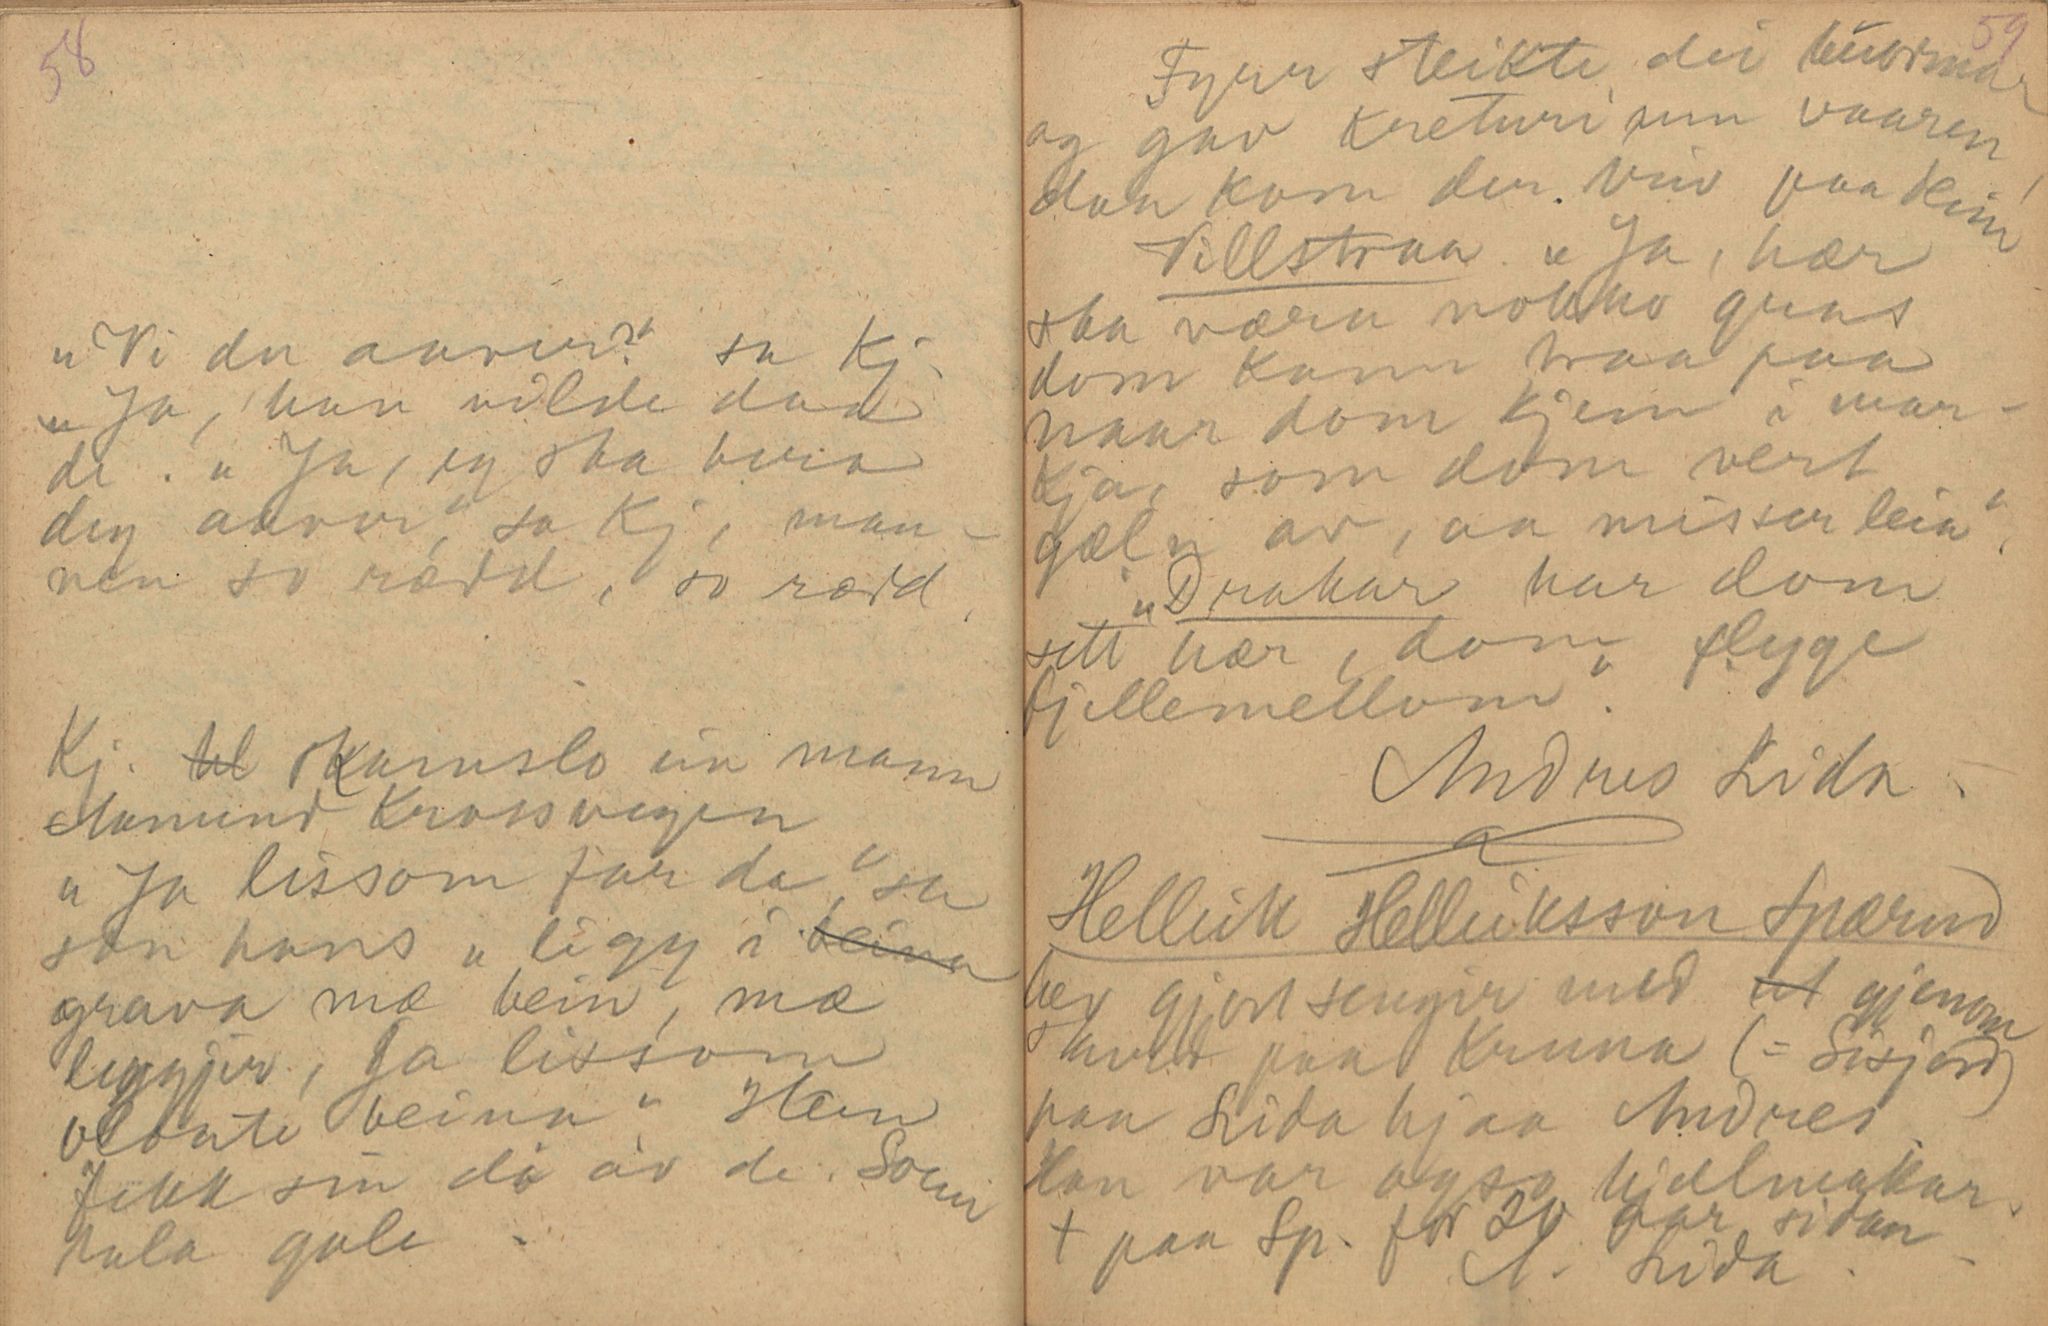 58
"Vi du aavur?" sa Kj.
"Ja, han vilde daa
de. "Ja, eg ska bera
deg aavur", sa Kj, man-
nen so rædd, so rædd.
Kj. til skamslo ein mann
Aamund Krossvegen
"Ja lissom far da", sa
son hans "ligg i beina
grava mæ bein, mæ
leggjir, Ja lissom
beina" Han
fekk sin då av de. Soleis
tala gale.
59
Fyrr steikte dei
og gav kreturi um vaaren,
daa kom der liv paa deim
Villstraa. "Ja, hær
ska væra nokko gras
dom kann traa paa
naar dom kjem i mar-
kja, som dom vert
gæln av, aa misser leia".
"Drakar har dom
sett hær, dom flyge
fjellemellom".
Andres Lida.
Helleik Helleiksson Spærud
hev gjort sengir med ut gjenom
skurd paa Kruna (= Sisjord)
paa Lida hjaa Andres.
Han var ogso hjelmakar.
† paa Sp. for 20 aar sidan.
A. Lida.